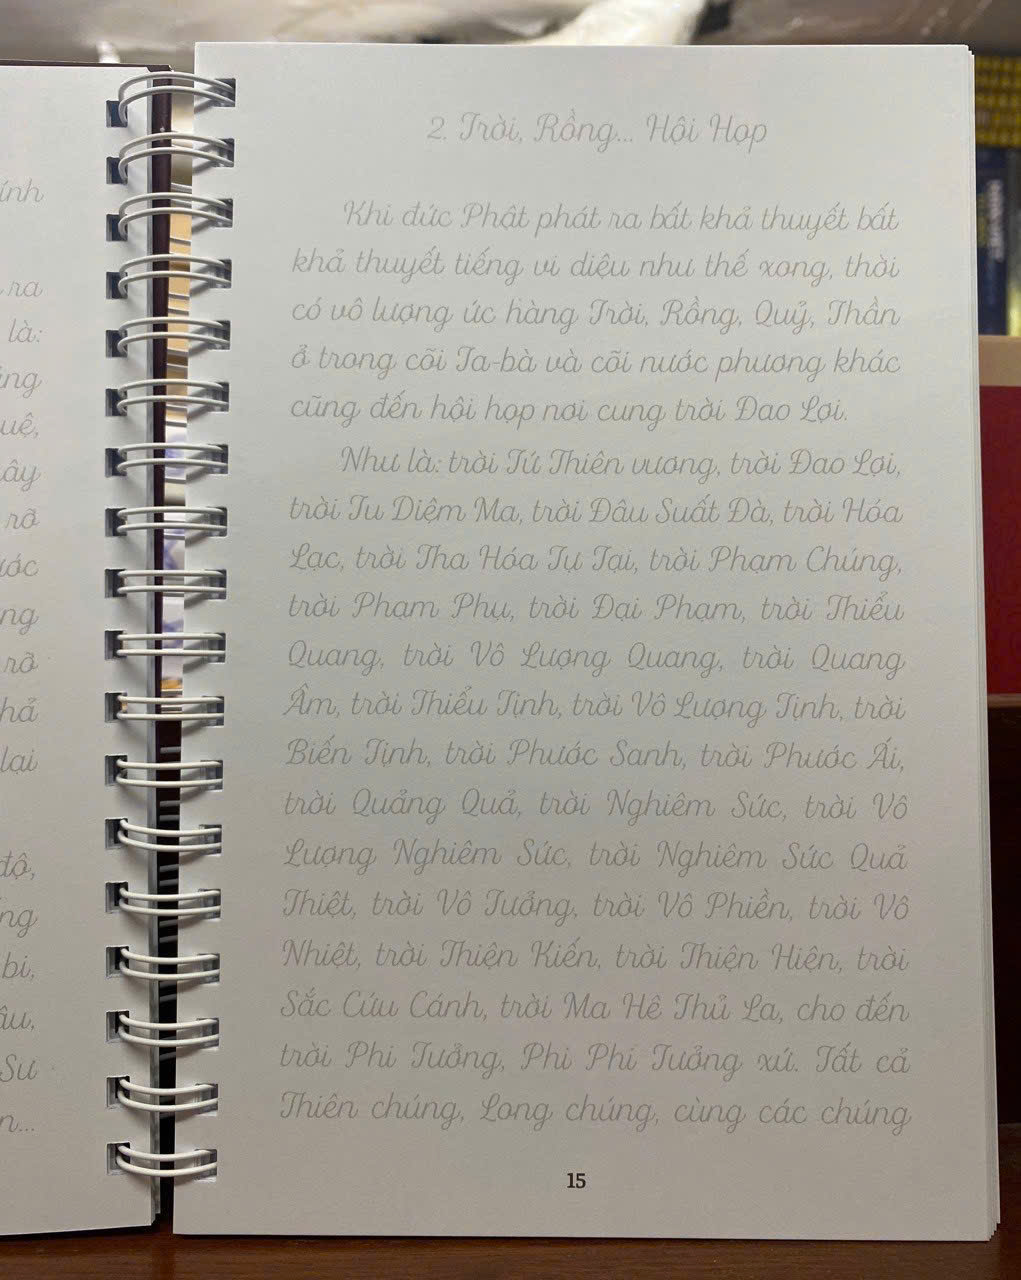 ính
ra
là:
uệ,
ây
rõ
ước
ng
rỡ
hả
lại
độ,
bi,
âu,
Sư
n...
2. Trời, Rồng... Hội Họp
Khi đức Phật phát ra bất khả thuyết bất
khả thuyết tiếng vi diệu như thế xong, thời
có vô lượng ức hàng Trời, Rồng, Quỷ, Thần
ở trong cõi Ta-bà và cõi nước phương khác
cũng đến hội họp nơi cung trời Đao Lợi.
Như là: trời Tứ Thiên vương, trời Đao Lợi,
trời Tu Diệm Ma, trời Đâu Suất Đà, trời Hóa
Lạc, trời Tha Hóa Tự Tại, trời Phạm Chúng,
trời Phạm Phụ, trời Đại Phạm, trời Thiểu
Quang, trời Vô Lượng Quang, trời Quang
Âm, trời Thiểu Tịnh, trời Vô Lượng Tịnh, trời
Biến Tịnh, trời Phước Sanh, trời Phước Ái,
trời Quảng Quả, trời Nghiêm Sức, trời Vô
Lượng Nghiêm Sức, trời Nghiêm Sức Quả
Thiệt, trời Vô Tưởng, trời Vô Phiền, trời Vô
Nhiệt, trời Thiện Kiến, trời Thiện Hiện, trời
Sắc Cứu Cánh, trời Ma Hê Thủ La, cho đến
trời Phi Tưởng, Phi Phi Tưởng xứ. Tất cả
Thiên chúng, Long chúng, cùng các chúng
15